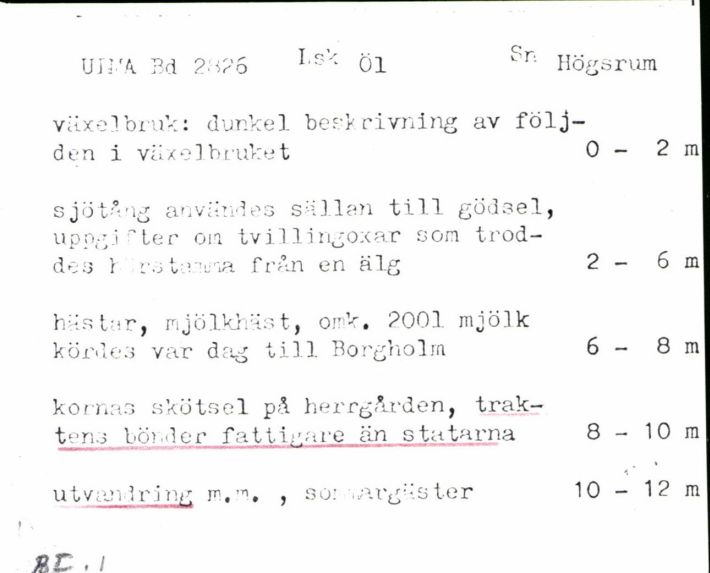 ULMA Bd 2826 Lsk Öl Sn Högsrum
växelbruk: dunkel beskrivning av följ-
den i växelbruket 0 - 2 m
sjötång användes sällan till gödsel,
uppgifter om tvillingoxar som trod-
des härstamma från en älg 2 - 6 m
hästar, mjölkhäst, omk. 200l mjölk
kördes var dag till Borgholm 6 - 8 m
kornas skötsel på herrgården, trak-
tens bönder fattigare än statarna 8 - 10 m
utvandring m.m. , sommargäster 10 - 12 m
BI.1